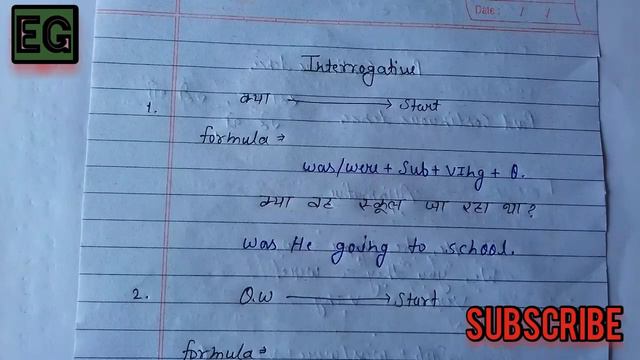 EG
Date : / /
Interrogative
1. क्या → Start
formula ⇒
was/were + Sub + VIng + O.
क्या वह स्कूल जा रहा था?
was He going to school.
2. Q.W → Start
formula ⇒
SUBSCRIBE